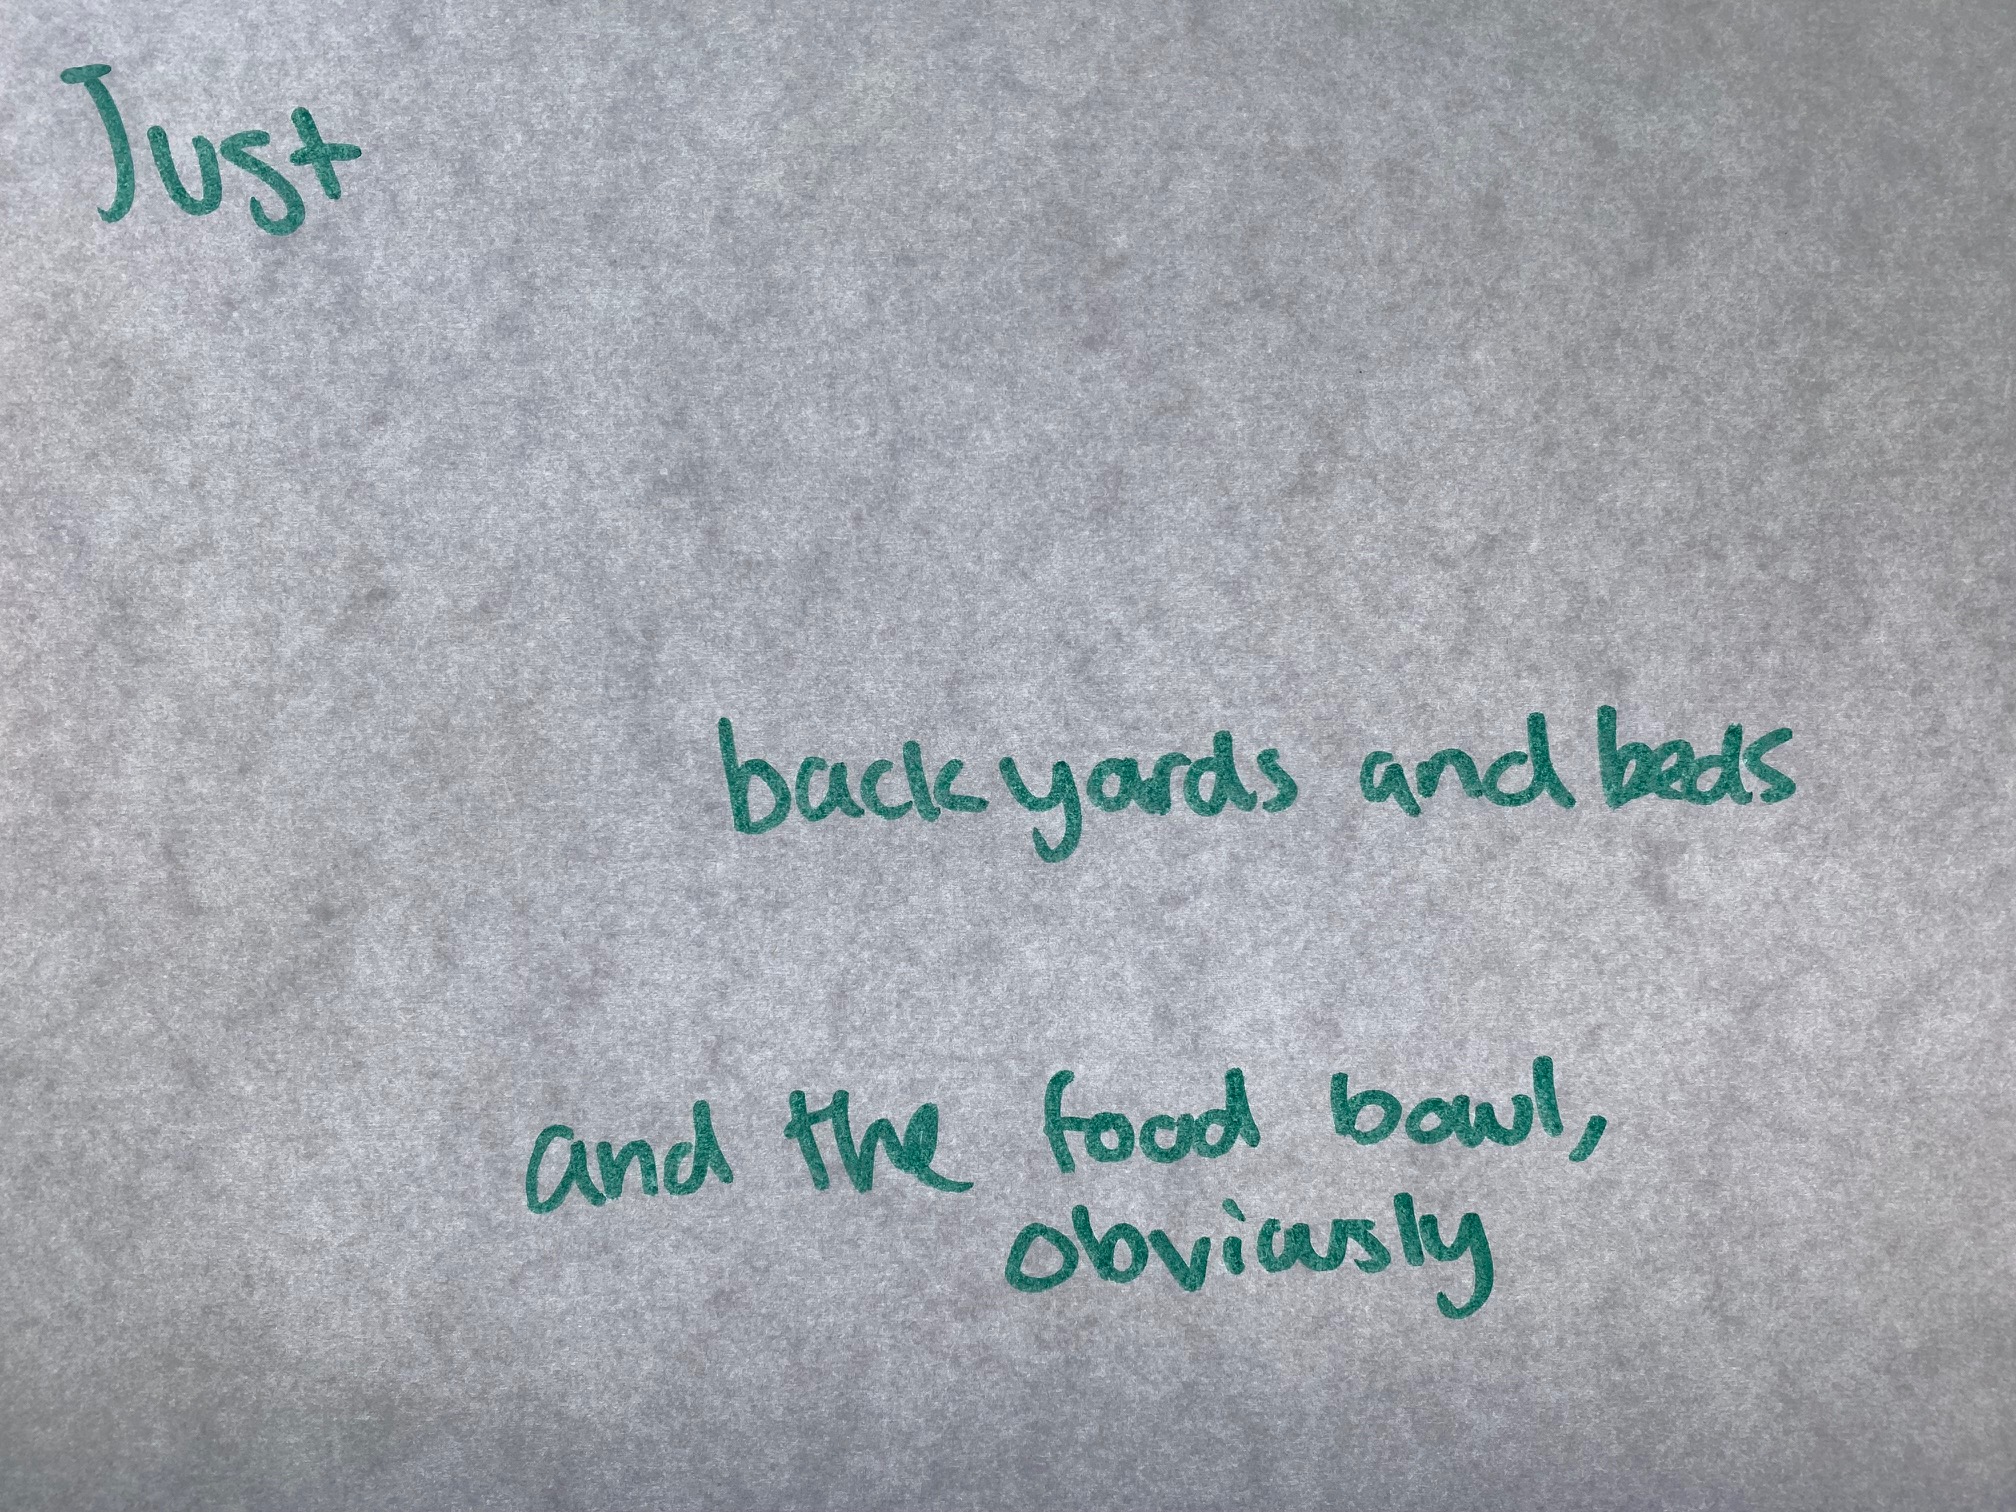 Just
backyards and beds
and the food bowl,
obviously